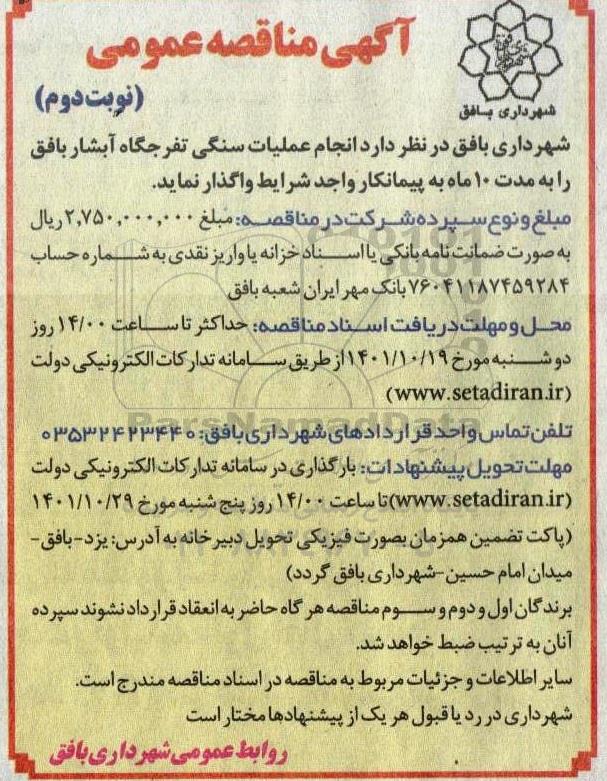 آگهی مناقصه عمومی
(نوبت دوم)
شهرداری بافق
شهرداری بافق در نظر دارد انجام عملیات سنگی تفرجگاه آبشار بافق
را به مدت ۱۰ ماه به پیمانکار واجد شرایط واگذار نماید.
مبلغ و نوع سپرده شرکت در مناقصه: مبلغ ۲,۷۵۰,۰۰۰,۰۰۰ ریال
به صورت ضمانت نامه بانکی یا اسناد خزانه یا واریز نقدی به شماره حساب
۷۶۰۴۱۱۸۷۴۵۹۲۸۴ بانک مهر ایران شعبه بافق
محل و مهلت دریافت اسناد مناقصه: حداکثر تا ساعت ۱۴/۰۰ روز
دوشنبه مورخ ۱۴۰۱/۱۰/۱۹ از طریق سامانه تدارکات الکترونیکی دولت
(www.setadiran.ir)
تلفن تماس واحد قراردادهای شهرداری بافق: ۰۳۵۳۲۴۲۳۴۴۰
مهلت تحویل پیشنهادات: بارگذاری در سامانه تدارکات الکترونیکی دولت
(www.setadiran.ir) تا ساعت ۱۴/۰۰ روز پنج شنبه مورخ ۱۴۰۱/۱۰/۲۹
(پاکت تضمین همزمان بصورت فیزیکی تحویل دبیرخانه به آدرس: یزد-بافق-
میدان امام حسین-شهرداری بافق گردد)
برندگان اول و دوم و سوم مناقصه هر گاه حاضر به انعقاد قرارداد نشوند سپرده
آنان به ترتیب ضبط خواهد شد.
سایر اطلاعات و جزئیات مربوط به مناقصه در اسناد مناقصه مندرج است.
شهرداری در رد یا قبول هر یک از پیشنهادها مختار است
روابط عمومی شهرداری بافق
ParsNamadData